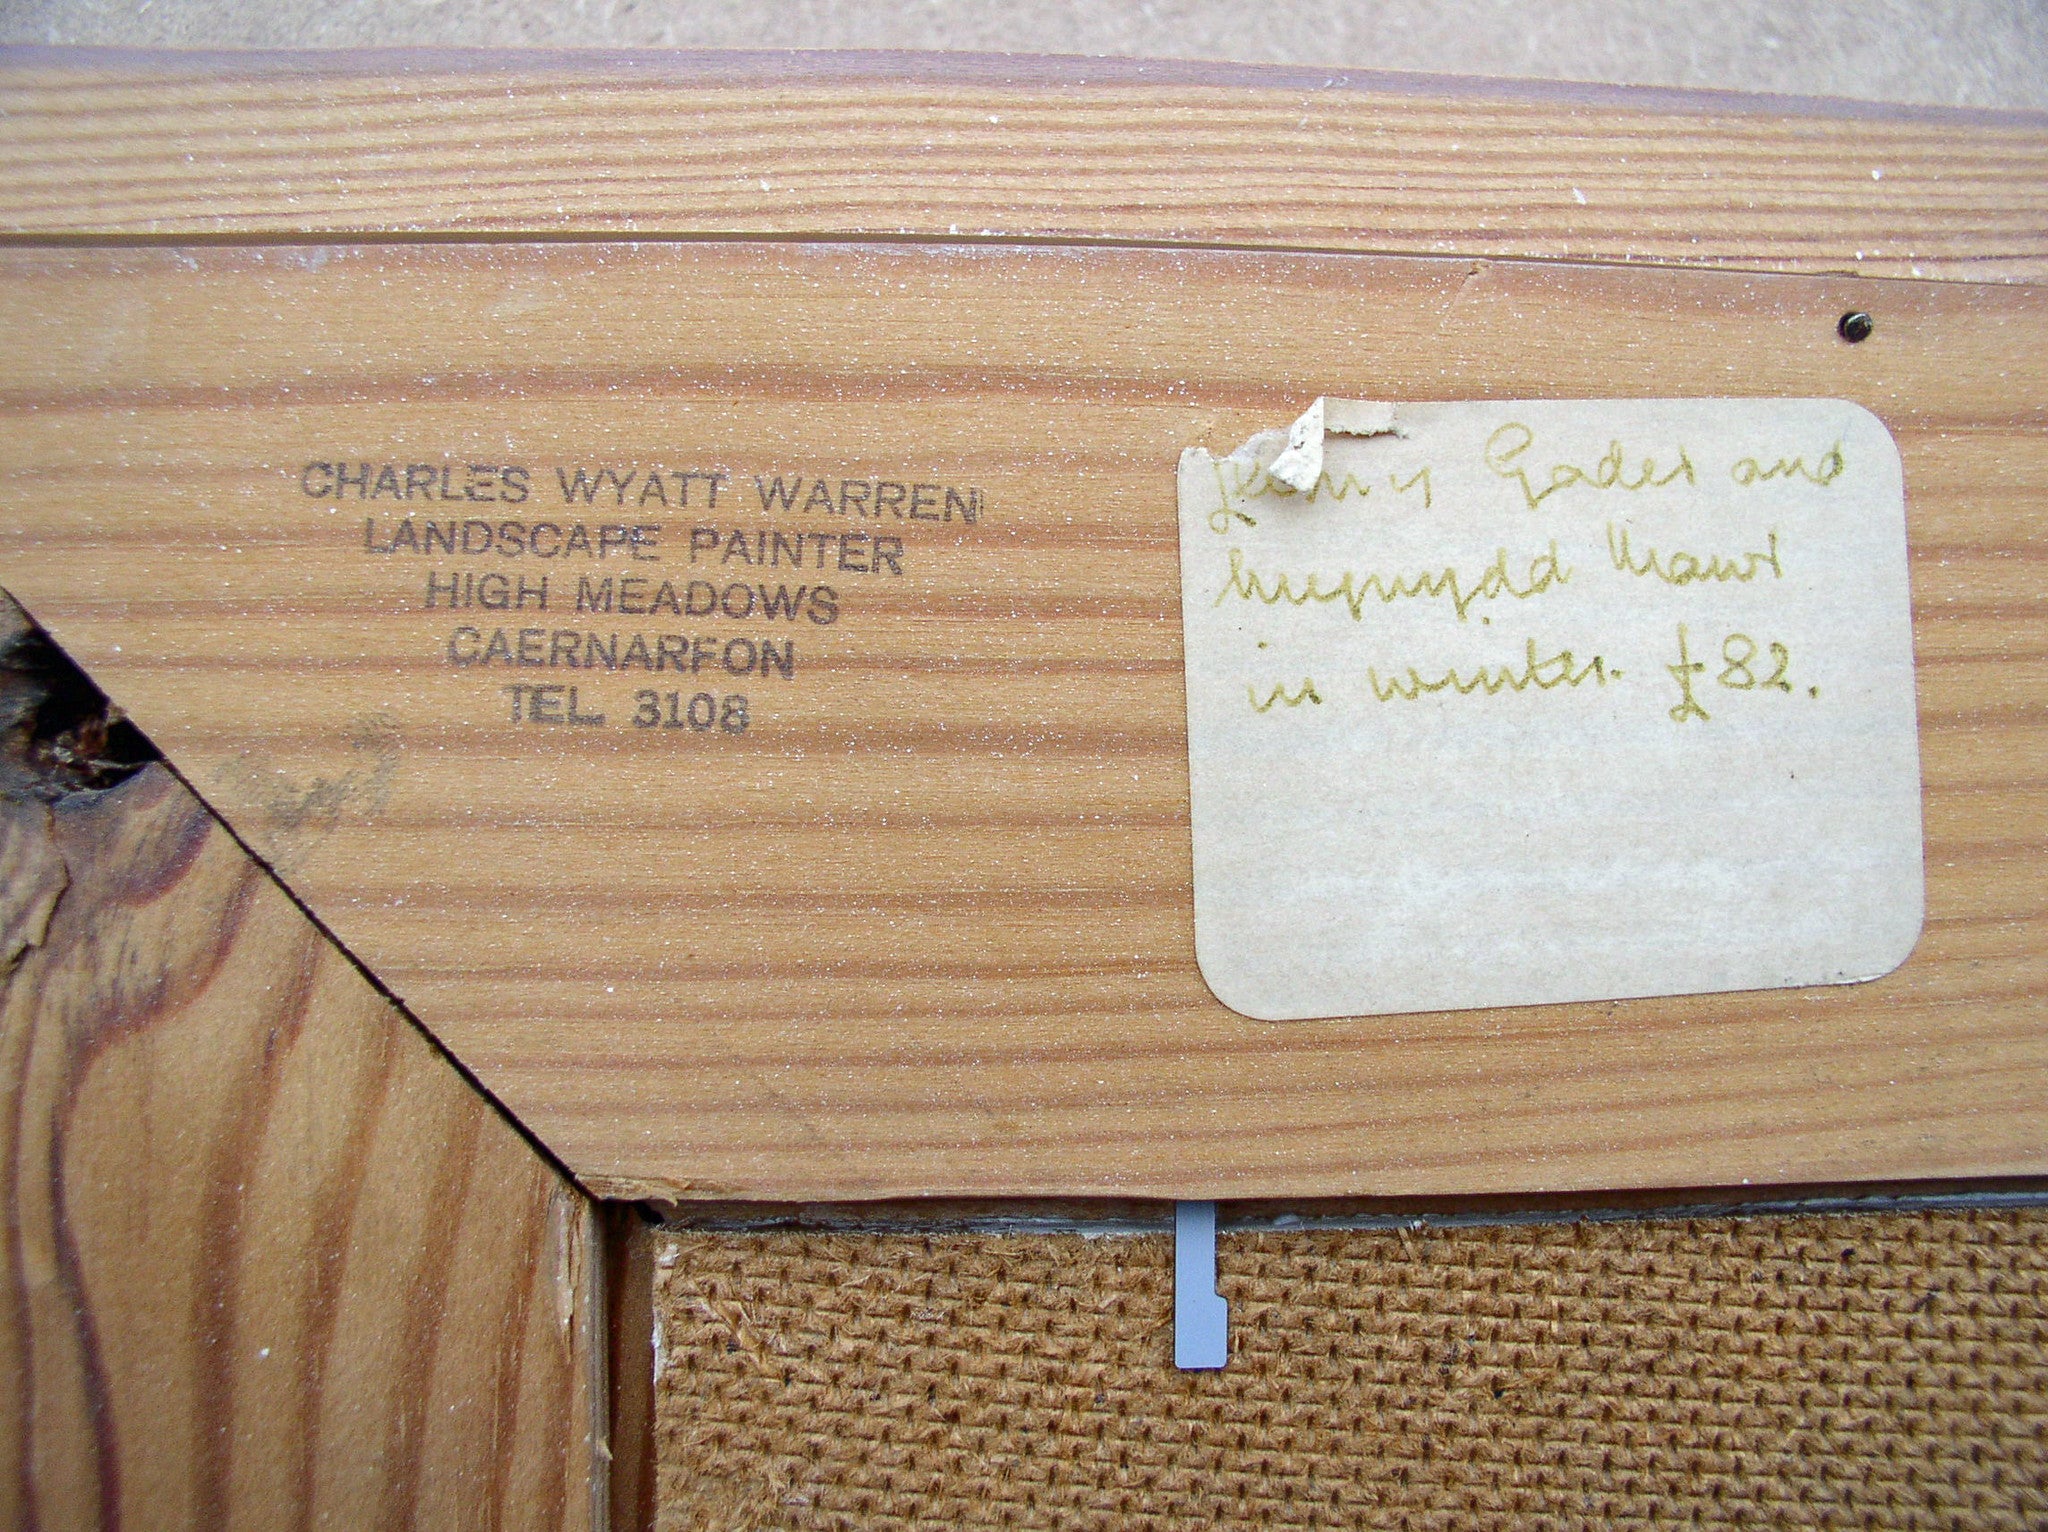 CHARLES WYATT WARREN
LANDSCAPE PAINTER
HIGH MEADOWS
CAERNARFON
TEL. 3108
y Gader and
Mynydd Mawr
in winter. £82.